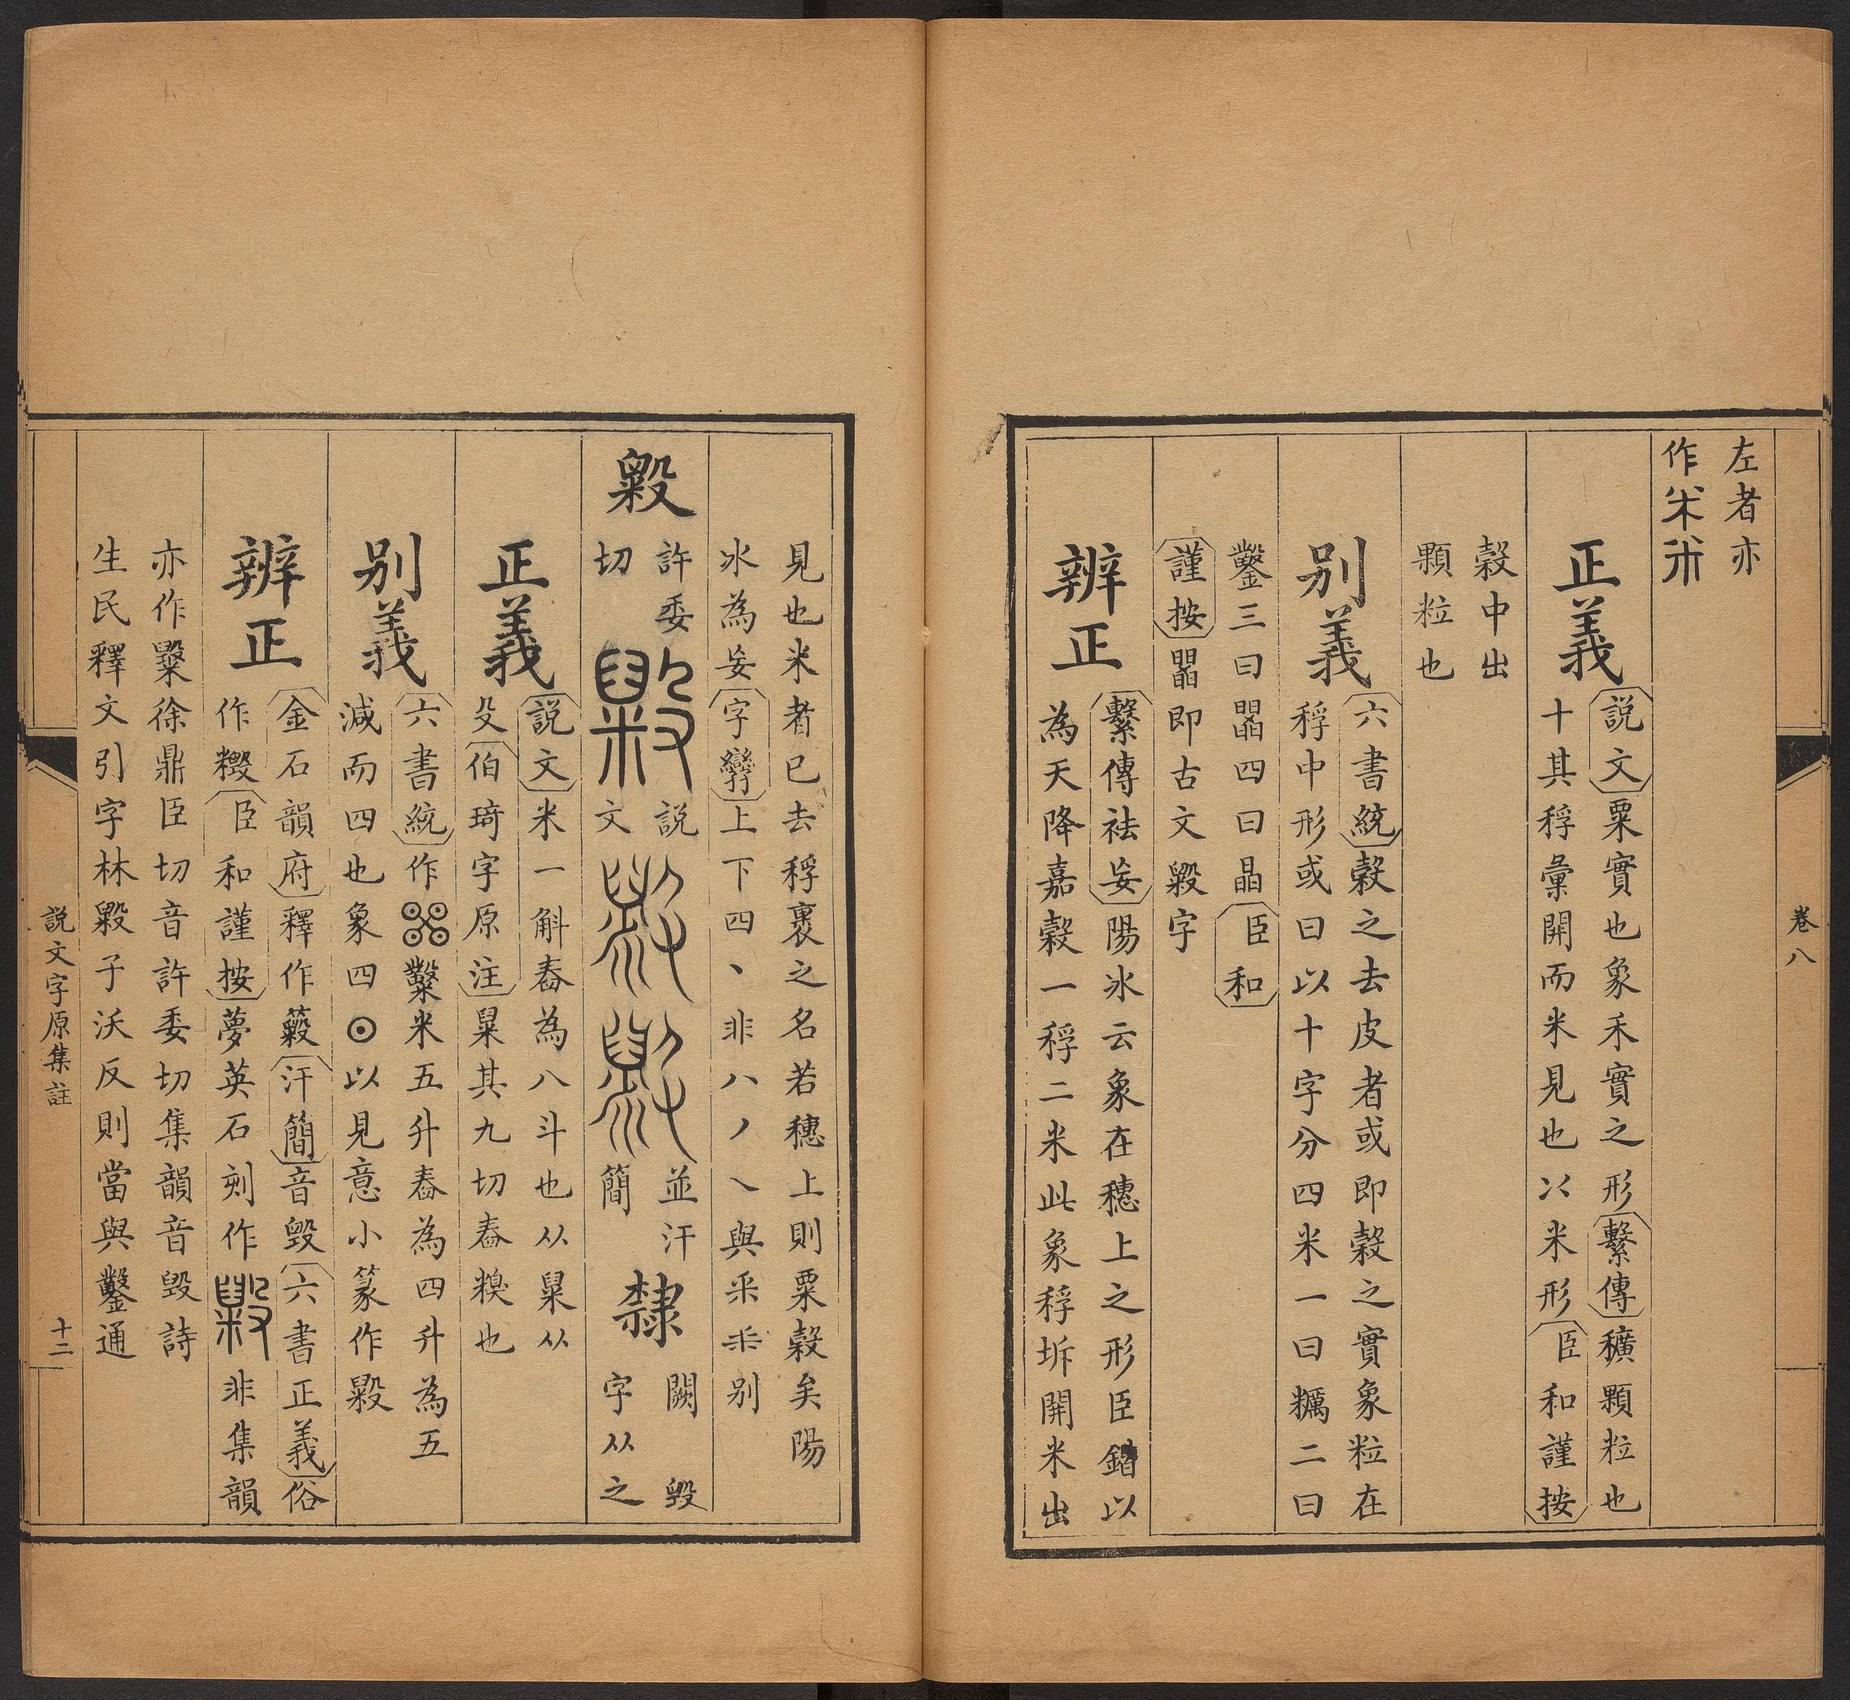 左者亦
作米𣎳
正義
說文粟實也象禾實之形繫傳穬顆粒也
十其稃彙開而米見也八米形臣和謹按
穀中出
顆粒也
别義
六書統穀之去皮者或即穀之實象粒在
稃中形或曰以十字分四米一曰糲二曰
鑿三曰㗊四曰晶臣和
謹按㗊即古文毇字
辨正
繫傳祛妄陽冰云象在穗上之形臣鍇以
為天降嘉穀一稃二米此象稃坼開米出
卷八
見也米者已去稃裏之名若穗上則粟穀矣陽
冰為妄字孿上下四丶非八丿乀與釆𠂹别
毇
許委
切
說
文
並汗
簡
隸
闕毀
字从之
正義
說文米一斛舂為八斗也从臼米从
殳伯琦字原注臼其九切舂糗也
别義
六書統作糳米五升舂為四升為五
減而四也象四⊙以見意小篆作毇
辨正
金石韻府釋作籔汗簡音毀六書正義俗
作糓臣和謹按夢英石刻作非集韻
亦作毇徐鼎臣切音許委切集韻音毀詩
生民釋文引字林毇子沃反則當與鑿通
說文字原集註
十二